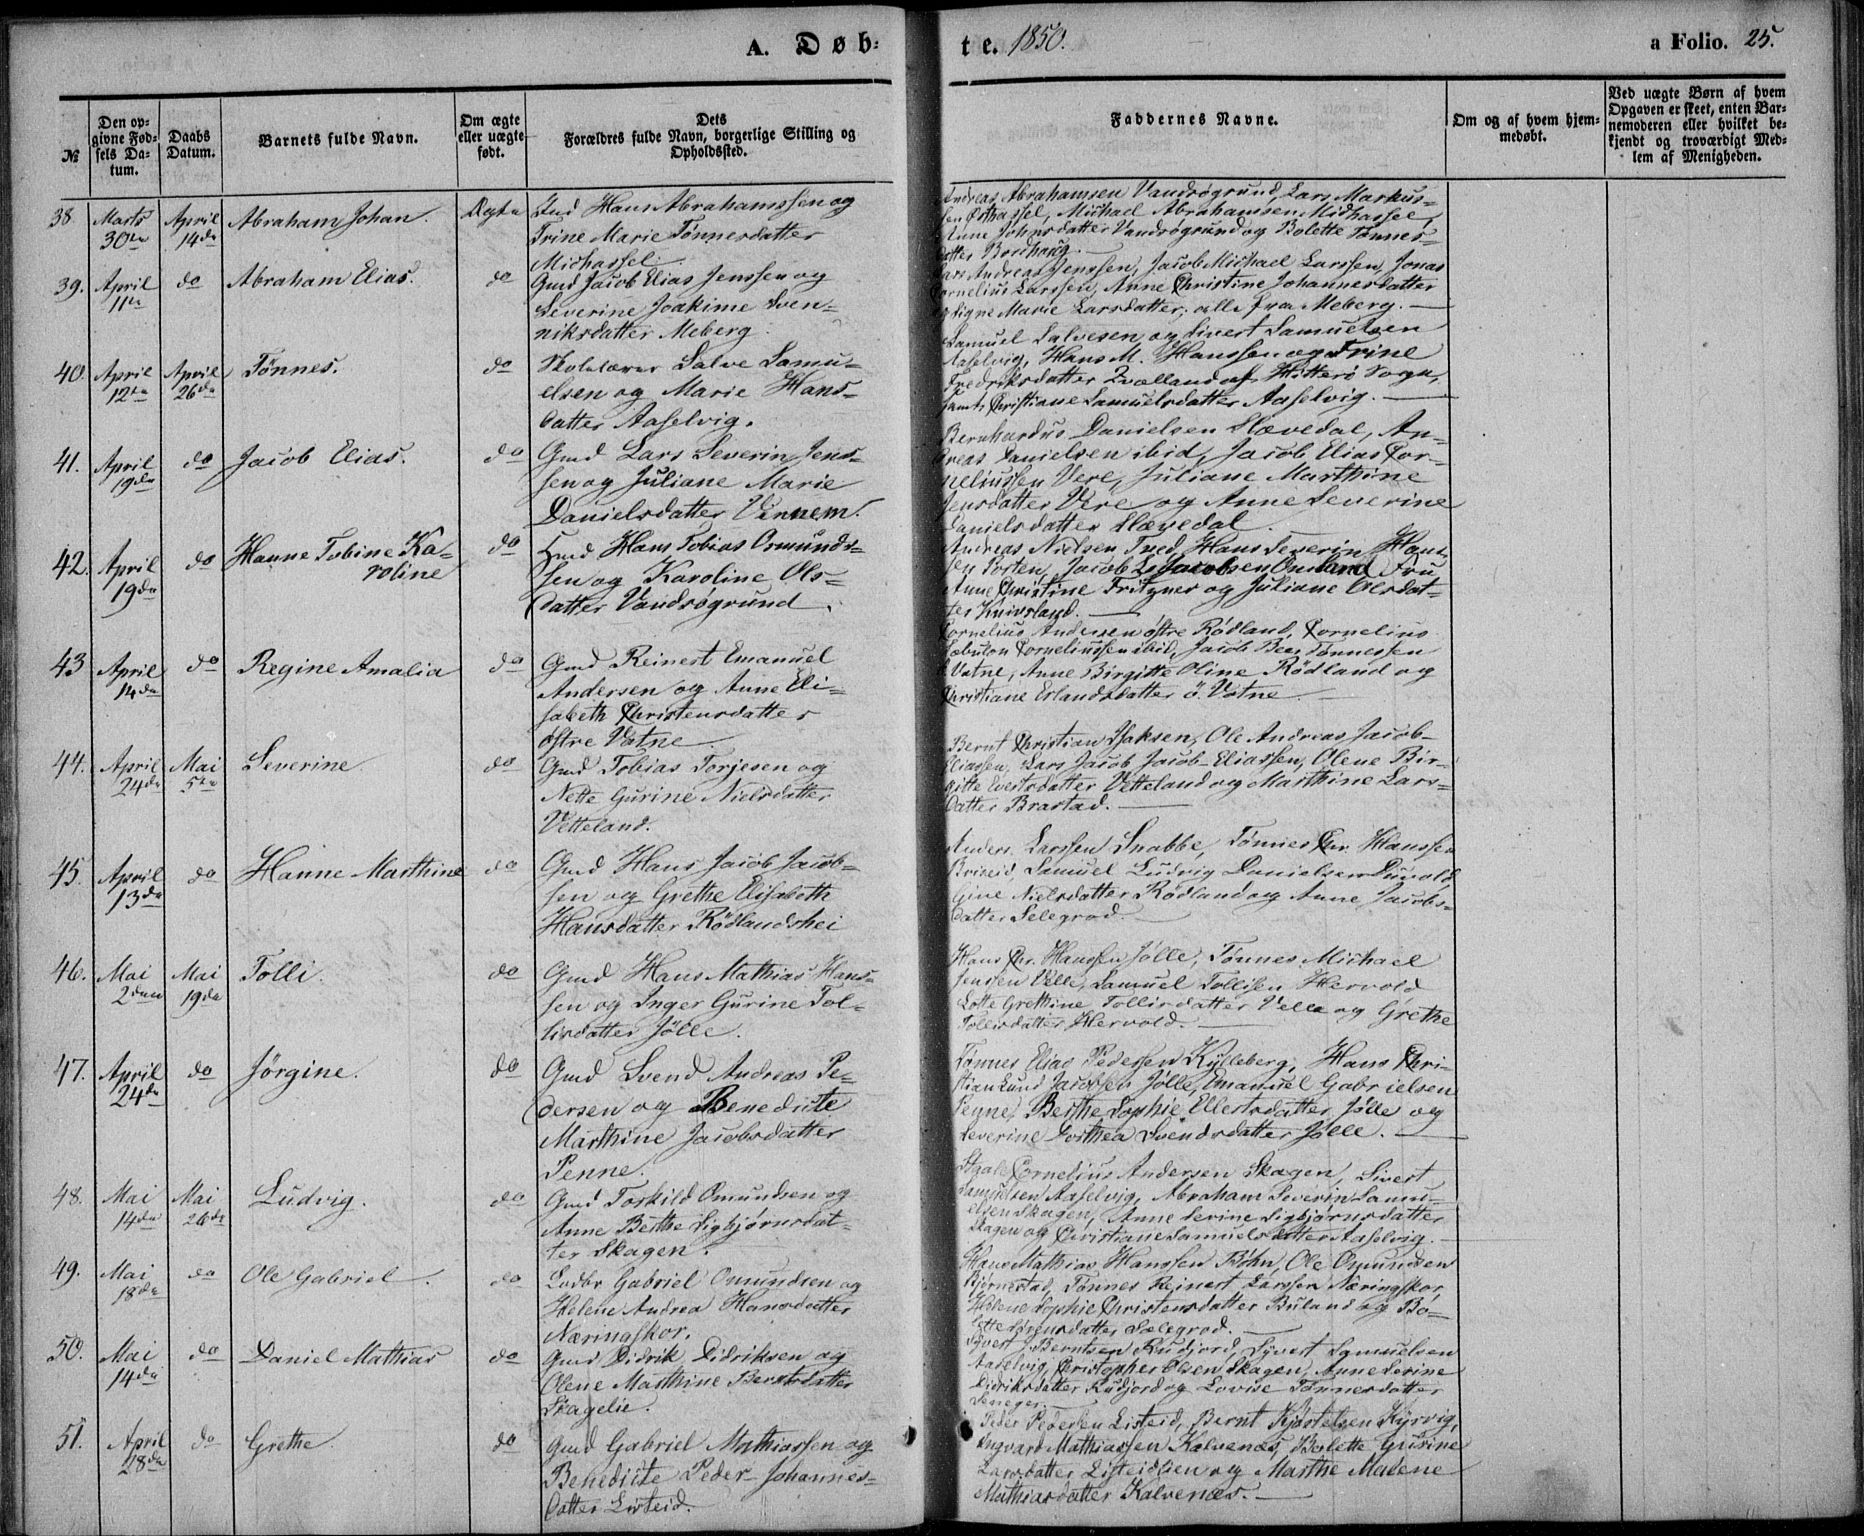 A. Døb-
te. 1850.
a Folio. 25.
№
Den op-
givne Fød-
sels Da-
tum.
Daabs
Datum.
Barnets fulde Navn.
Om ægte
eller uægte
født.
Dets
Forældres fulde Navn, borgerlige Stilling og
Opholdssted.
Faddernes Navne.
Om og af hvem hjem-
medøbt.
Ved uægte Børn af hvem
Opgaven er skeet, enten Bar-
nemoderen eller hvilket be-
kjendt og troværdigt Med-
lem af Menigheden.
38. Marts 30te April 14de Abraham Johan. Ægte
Gmd Hans Abrahamssen og
Trine Marie Tønnesdatter
Midhassel.
Andreas Abrahamsen Vandsøgrund, Lars Markus-
sen Østhassel, Michael Abrahamsen Midhassel,
Anne Johnsdatter Vandsøgrund og Bolette Tønnes-
datter Bordhaug.
39. April 11te do Abraham Elias. do
Gmd Jacob Elias Jenssen og
Severine Joakime Sven-
niksdatter Meberg.
Lars Andreas Jenssen, Jacob Michael Larssen, Jonas
Cornelius Larssen, Anne Christine Johannesdatter
og Signe Marie Larsdatter, alle fra Meberg.
40. April 12te April 26de Tønnes. do
Skolelærer Salve Samu-
elsen og Marie Hans-
datter Aaselvig.
Samuel Salvesen og Sivert Samuelsen
Aaselvig, Hans M. Hanssen og Trine
Fredriksdatter af Hitterø Sogn,
samt Christiane Samuelsdatter Aaselvig.
41. April 19de do Jacob Elias. do
Gmd Lars Severin Jens-
sen og Juliane Marie
Danielsdatter Vennem.
Bernhardus Danielsen Slævedal, An-
dreas Danielsen ibid, Jacob Elias Cor-
neliussen Vere, Juliane Marthine
Jensdatter Vere og Anne Severine
Danielsdatter Slævedal.
42. April 19de do Hanne Tobine Ka-
roline do
Hmd Hans Tobias Osmunds-
sen og Karoline Ols-
datter Vandsøgrund.
Andreas Nielsen Tved, Hans Severin Hans-
sen Josten, Jacob Jacobsen Omland, Fru
Anne Christine Fritzner og Juliane Olsdat-
ter Knivsland.
43 April 14de do Regine Amalia do
Gmd Reinert Emanuel
Andersen og Anne Eli-
sabeth Christensdatter
østre Vatne.
Cornelius Andersen østre Rødland, Cornelius
Sebulon Corneliussen ibid, Jacob Tønnessen
Vatne, Anne Birgitte Oline Rødland og
Christiane Erlandsdatter ö. Vatne
44. April 24de Mai 5te Severine. do
Gmd Tobias Torjesen og
Nette Gurine Nielsdatter
Vetteland.
Bernt Christian Isaksen, Ole Andreas Jacob-
Eliassen, Lars Jacob Jacob-Eliassen, Olene Bir-
gitte Evertsdatter Vetteland og Marthine Lars-
datter Brastad.
45. April 13de do Hanne Marthine do
Gmd Hans Jacob Jacob-
sen og Grethe Elisabeth
Hansdatter Rødlandshei
Anders Larssen Snabbe, Tønnes Chr. Hanssen
Briseid, Samuel Ludvig Danielsen Dunold,
Gine Nielsdatter Rødland og Anne Jacobs-
datter Selegrod.
46. Mai 2den Mai 19de Tolli. do
Gmd Hans Mathias Hans-
sen og Inger Gurine Tol-
lisdatter Jølle.
Hans Chr. Hanssen Jølle, Tønnes Michael
Jensen Velle, Samuel Tollisen Hervold
Lotte Grethine Tollisdatter Velle og Grethe
Tollisdatter Hervold.
47. April 24de do Jørgine. do
Gmd Svend Andreas Pe-
dersen og Benedicte
Marthine Jacobsdatter
Penne.
Tønnes Elias Pedersen Kylleberg, Hans Chri-
stian Lund Jacobsen Jølle, Emanuel Gabrielsen
Penne, Berthe Sophie Ellertsdatter Jølle og
Severine Dorthea Svendsdatter Jølle.
48. Mai 14de Mai 26de Ludvig. do
Gmd Torkild Omundsen og
Anne Berthe Sigbjørnsdat-
ter Skagen.
Staale Cornelius Andersen Skagen, Sivert
Samuelsen Aaselvig, Abraham Severin Samu-
elsen Skagen, Anne Serine Sigbjørnsdatter
Skagen og Christiane Samuelsdatter Aaselvig.
49. Mai 18de do Ole Gabriel. do
Lodbr Gabriel Omundsen og
Helene Andrea Hansdatter
Næringskor.
Hans Mathias Hanssen Bøhn, Ole Omundsen
Bjørnestad, Tønnes Reinert Larssen Næringskor,
Helene Sophie Christensdatter Buland og Bo-
lette Sørensdatter Selegrod.
50. Mai 14de do Daniel Mathias do
Gmd Didrik Didriksen og
Olene Marthine Berntsdatter
Skagelie.
Syvert J. Berntsen Rudjord, Syvert Samuelsen
Aaselvig, Christopher Olsen Skagen, Anne Serine
Didriksdatter Rudjord og Lovise Tønnesdatter
51. April 28de do Grethe. do
Gmd Gabriel Mathiassen og
Benedicte Peder-Johannes-
datter Listeid.
Peder Pedersen Listeid, Bernt Kjøstelsen Kyrvig,
Ingvart Mathiassen Kalvenæs, Bolette Gurine
Larsdatter Listeidlien og Marthe Malene
Mathiasdatter Kalvenæs.